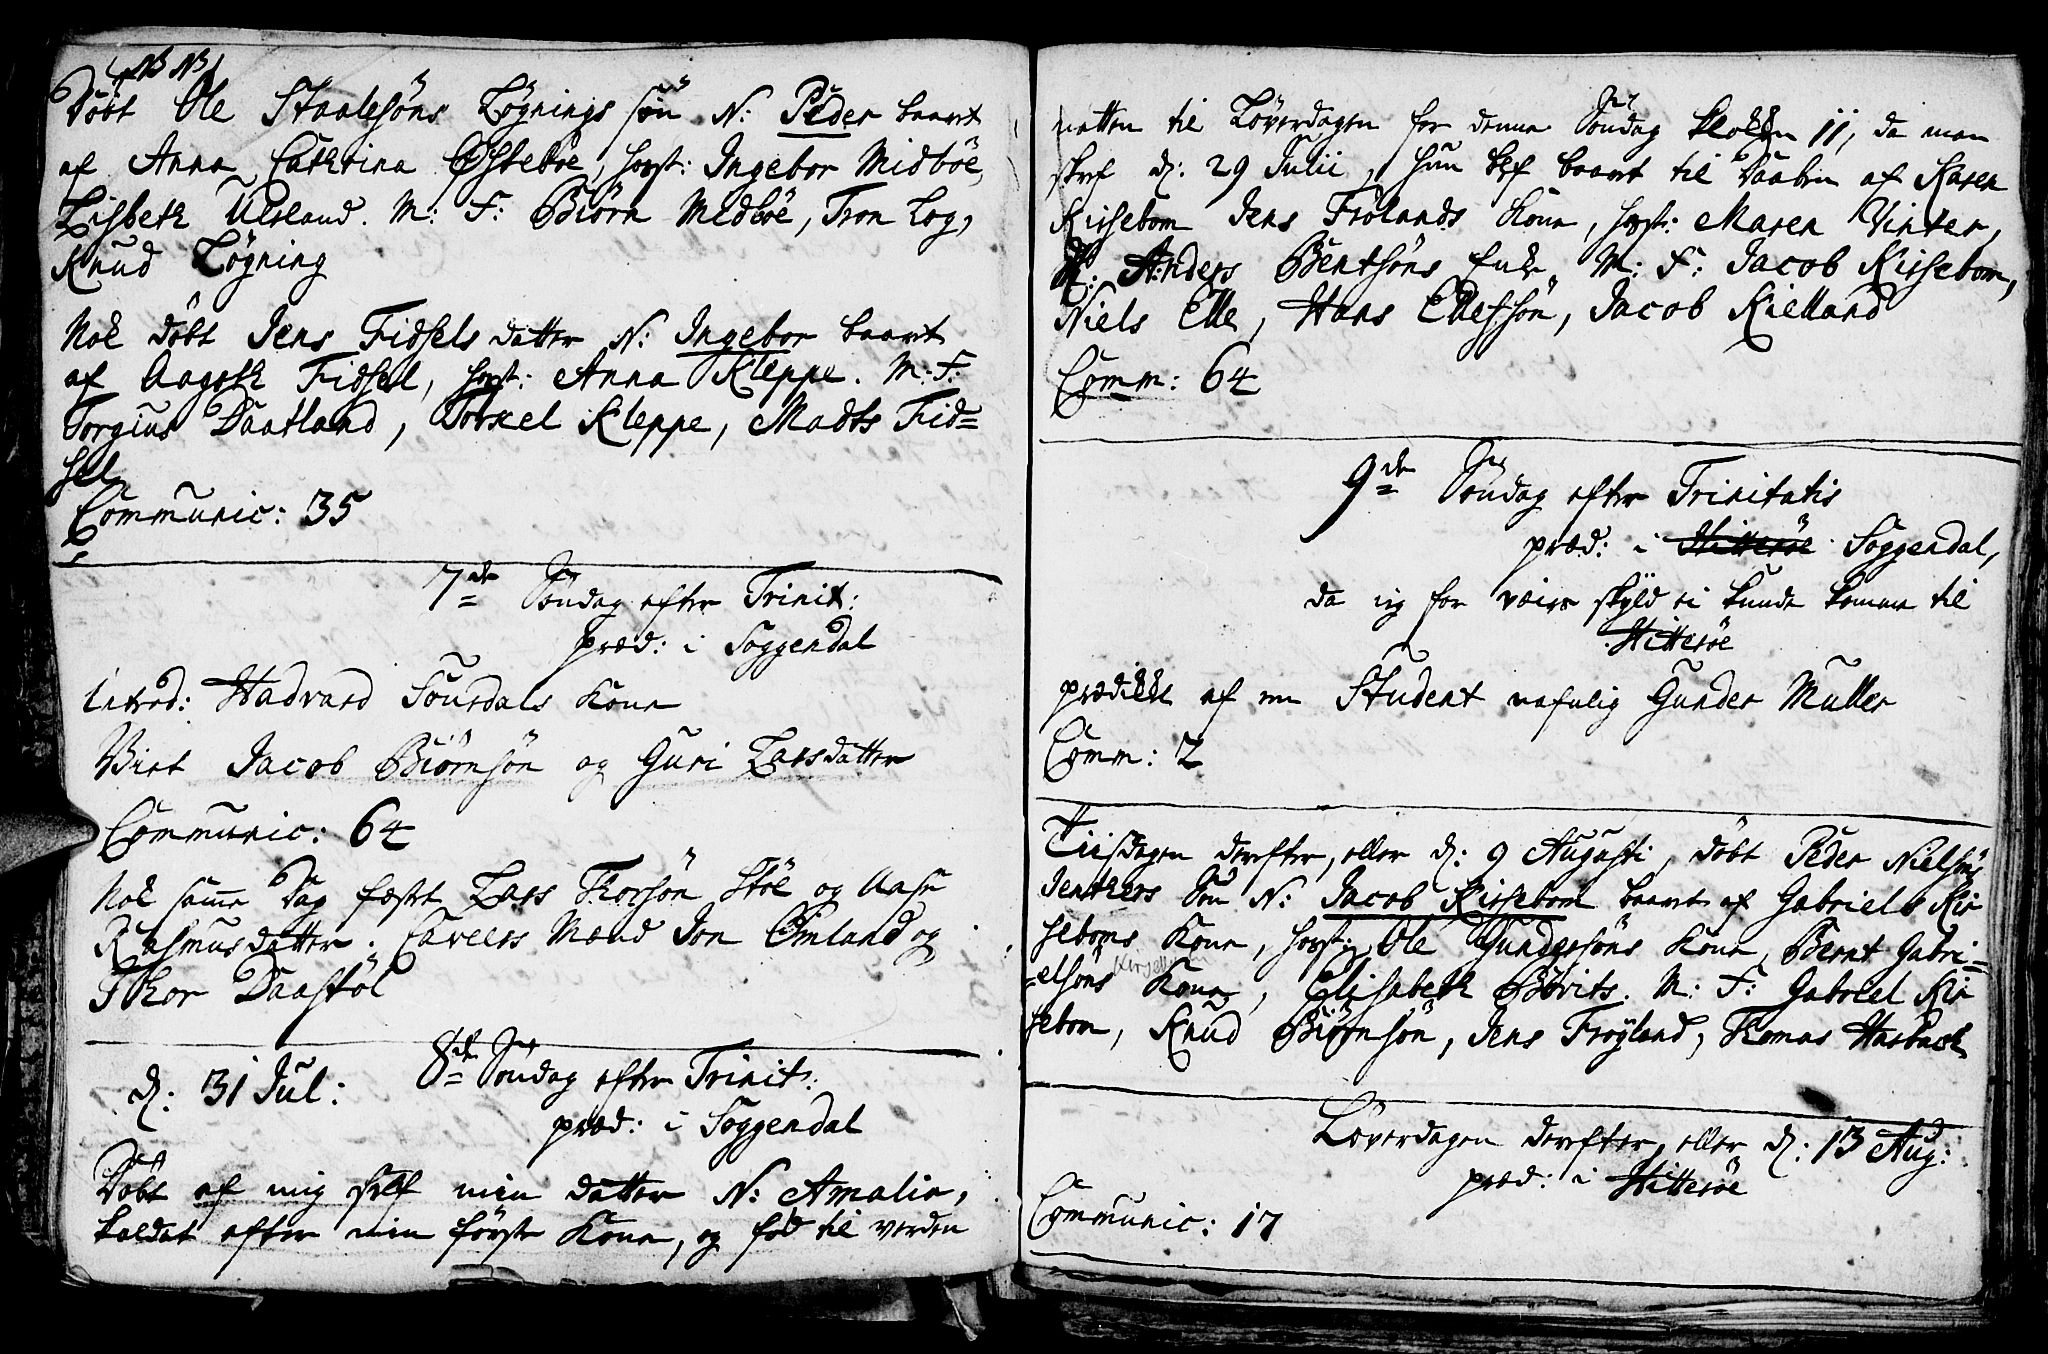 NB NB
Döbt Ole Staalesöns Lögnings sön N: Peder baaret
af Anna Cathrina Östeböe, host: Ingebor Midböe,
Lisbeth Ulsland. M: F: Biörn Medböe, Tron Log,
Knud Lögning
Nok döbt Jens Fidsels datter N: Ingebor baaret
af Aagoth Fidsel, host: Anna Kleppe. M: F:
Torgius Daatland, Torkel Kleppe, Madts Fid=
sel
Communic: 35
7de Söndag efter Trinit:
præd: i Soggendal
Introd: Hadvard Sourdals Kone
Viet Jacob Biörnsön og Guri Larsdatter
Communic: 64
Nok samme Dag fæstet Lars Thorsön Stöe og Aase
Rasmusdatter. Caveers Mænd Jon Omland og
Thor Daastöl
d: 31 Jul: 8de Söndag efter Trinit:
præd: i Soggendal
Döbt af mig self min datter N: Amalia,
kaldet efter min förste Kone, og föd til verden
natten til Löverdagen for denne Söndag klokken 11, da man
skref d: 29 Julii, hun blef baaret til Daaben af Karen
Kirsebom Jens Frolands Kone, host: Maren Vinter,
Anders Bentsöns Enke. M: F: Jacob Kirsebom,
Niels Elle, Hans Ellefsön, Jacob Kielland
Comm: 64
9de Söndag efter Trinitatis
præd: i Hitteröe Soggendal,
da jeg for veirs skyld ei kunde komme til
Hitteröe
prædiket af en Student nafnlig Gunder Muller
Comm: 2
Tiisdagen derefter, eller d: 9 Augusti, döbt Peder Nielsöns
Sön N: Jacob Kirsebom baaret af Gabriels Kir
seboms Kone, host: Ole Gundersöns Kone, Bernt Gabri=
=elsöns Kone, Elisabeth Bövits. M: F: Gabriel Kir
sebom, Knud Biörnsön, Jens Fröyland, Thomas Hasbach
Löverdagen derefter, eller d: 13 Aug:
præd: i Hitteröe
Communic: 17